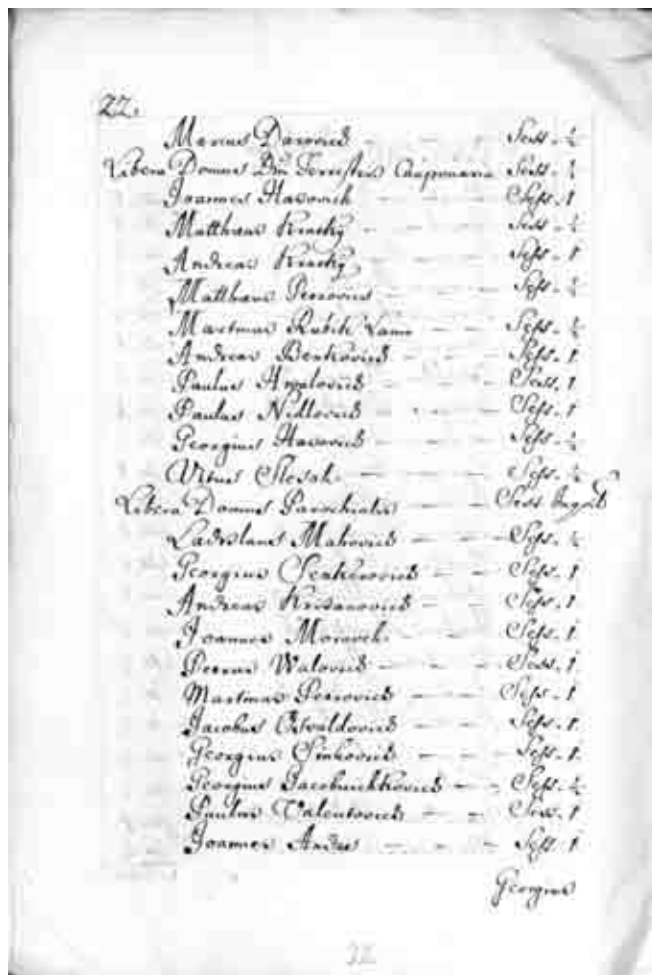 22.
Marcus Darovics - - - Sess. ½
Libera Domus Dni Terrestris Cauponaria Sess. ½
Joannes Havovich - - - Sess. 1
Matthaus Kraky - - - Sess. ½
Andreas Kraky - - - Sess. 1
Matthaus Petrovics - - - Sess. ½
Martinus Rubik - - Sess. ½
Andreas Benkovics - - - Sess. 1
Paulus - - - Sess. 1
Paulus Nidlovics - - - Sess. 1
Georgius Havovics - - - Sess. ½
Vitus Slesak - - - Sess. ½
Libera Domus Parochialis - - Sess.
Ladislaus Makovics - - - Sess. ½
Georgius - - - Sess. 1
Andreas Krisanovics - - - Sess. 1
Joannes - - - Sess. 1
Petrus Walovics - - - Sess. 1
Martinus Petrovics - - - Sess. 1
Jacobus Osvaldovics - - - Sess. 1
Georgius Sinkovics - - - Sess. 1
Georgius - - Sess. ½
Paulus Valentovics - - - Sess. 1
Joannes - - - Sess. 1
Georgius
22